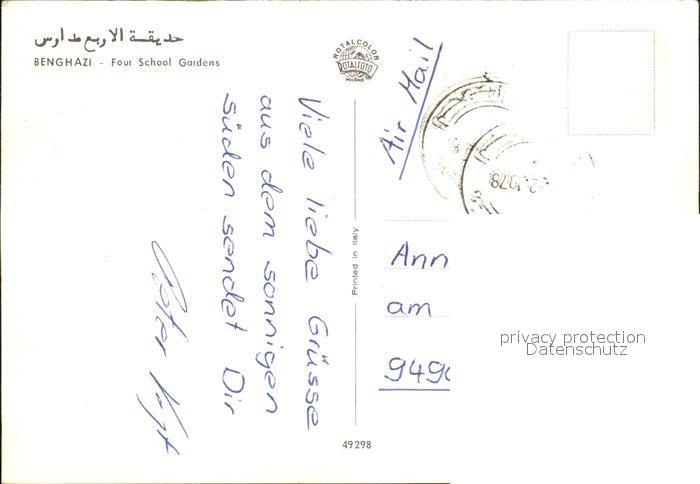 حديقة الاربع مدارس
BENGHAZI - Four School Gardens
ROTALCOLOR
ROTALFOTO
MILANO
Air Mail
Viele liebe Grüsse
aus dem sonnigen
Süden sendet Dir
Peter
Printed in Italy
1978
Ann
am
949
privacy protection
Datenschutz
49298